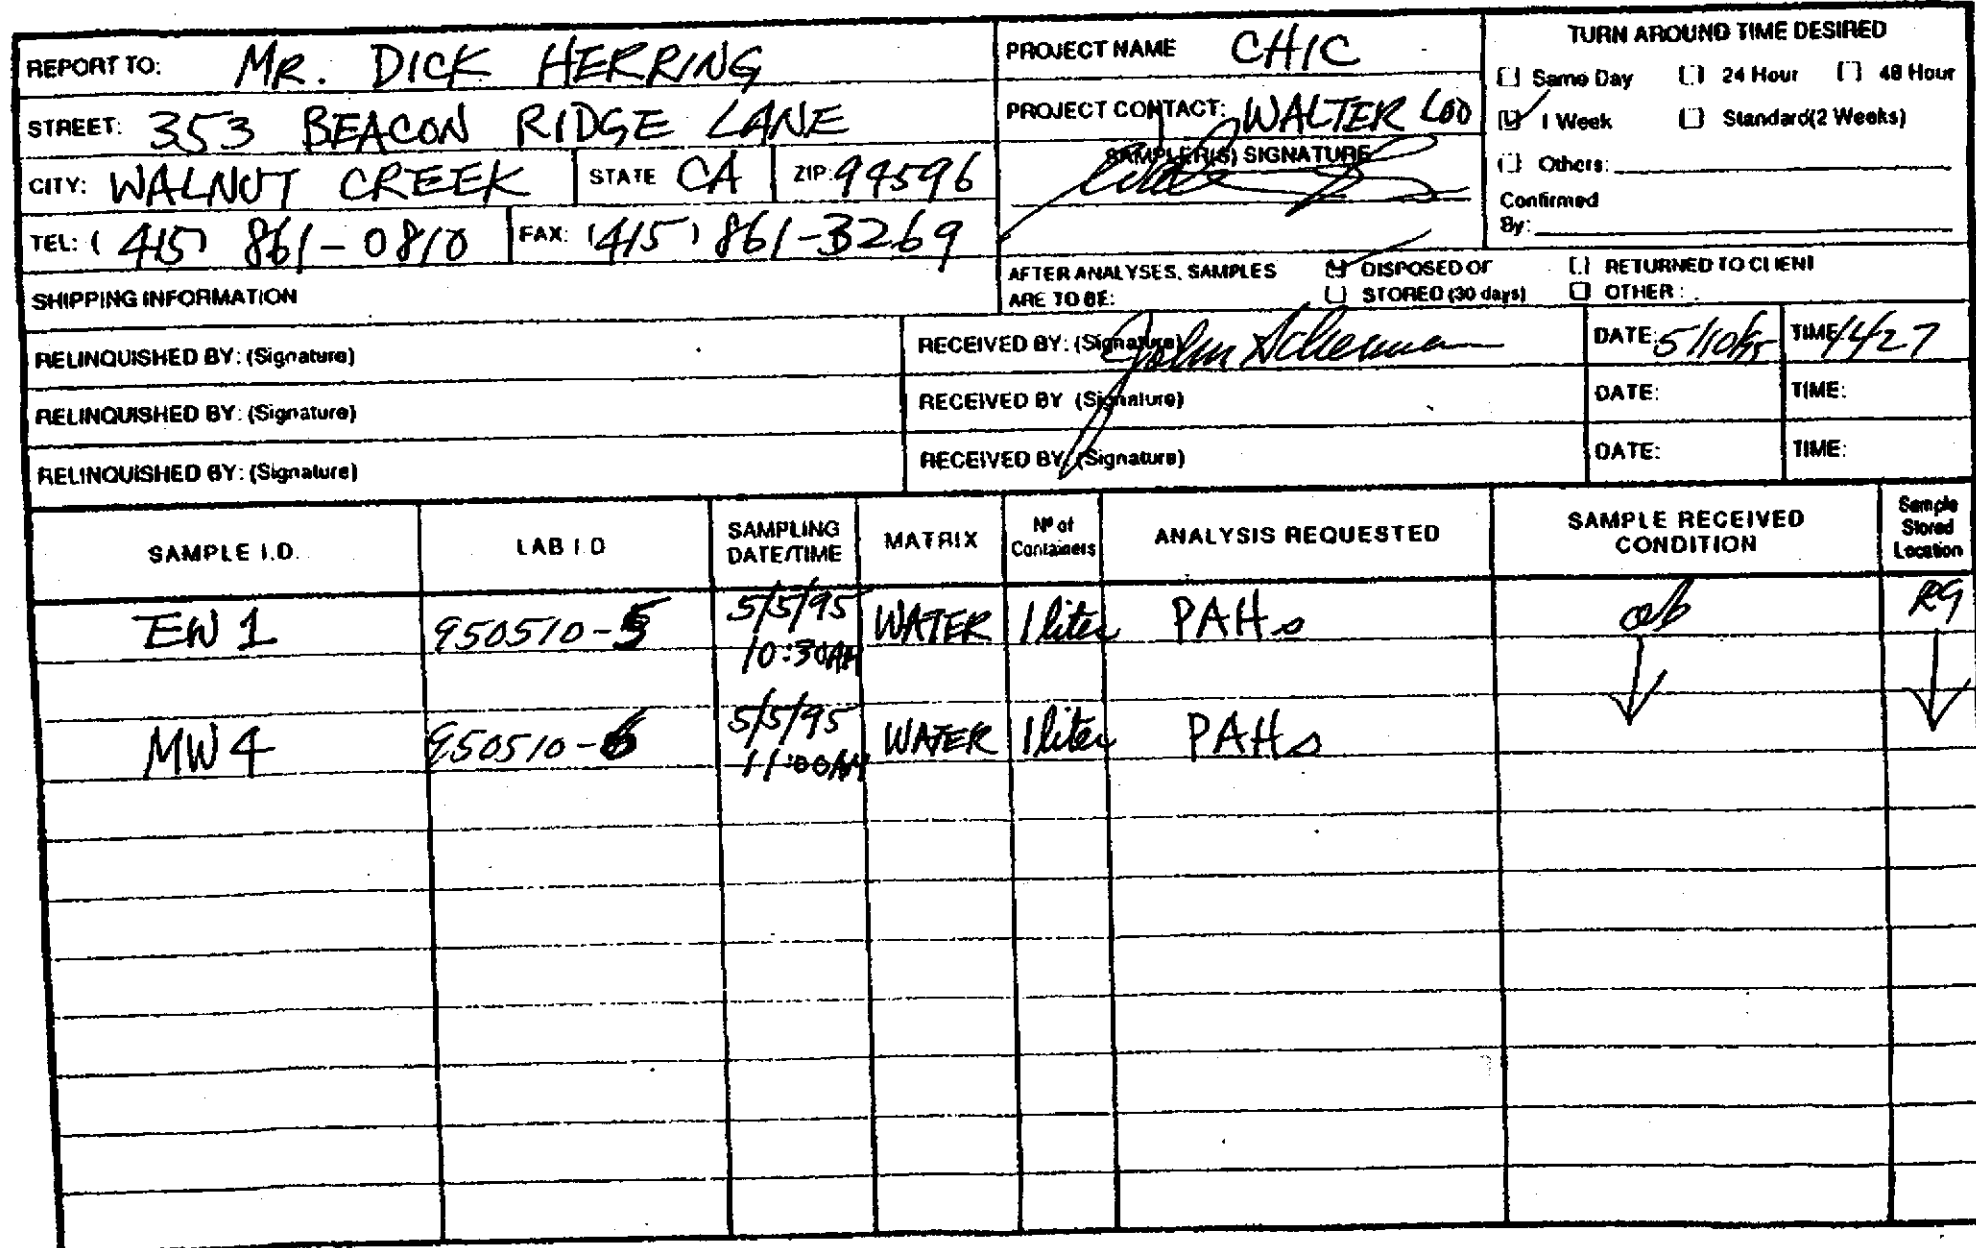 REPORT TO: MR. DICK HERRING
STREET: 353 BEACON RIDGE LANE
CITY: WALNUT CREEK STATE CA ZIP: 94596
TEL: (415) 861-0810 FAX: (415) 861-3269
SHIPPING INFORMATION
PROJECT NAME CHIC
PROJECT CONTACT: WALTER LOO
SAMPLER(S) SIGNATURE
TURN AROUND TIME DESIRED
Same Day 24 Hour 48 Hour
1 Week Standard(2 Weeks)
Others:
Confirmed
By:
AFTER ANALYSES, SAMPLES DISPOSED OF RETURNED TO CLIENT
ARE TO BE: STORED (30 days) OTHER:
RELINQUISHED BY: (Signature) RECEIVED BY: (Signature) John DATE: 5/10/95 TIME 1427
RELINQUISHED BY: (Signature) RECEIVED BY (Signature) DATE: TIME:
RELINQUISHED BY: (Signature) RECEIVED BY: (Signature) DATE: TIME:
SAMPLE I.D. LAB I.D SAMPLING DATE/TIME MATRIX Nº of Containers ANALYSIS REQUESTED SAMPLE RECEIVED CONDITION Sample Stored Location
EW 1 950510-5 5/5/95 WATER 1 liter PAHs
10:30AM
MW 4 950510-6 5/5/95 WATER 1 liter PAHs
11:00AM